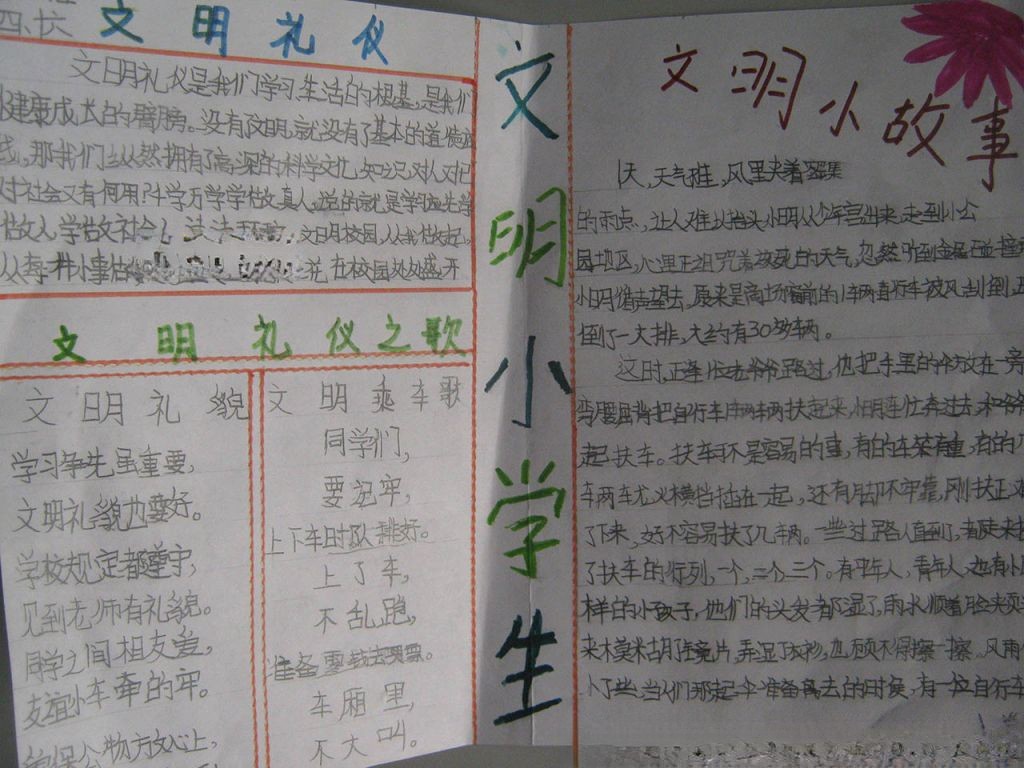 文明礼仪
文明礼仪是我们学习、生活的根基，是我们
健康成长的臂膀。没有文明，就没有了基本的道德
那我们纵然拥有高深的科学文化知识，对人对己
对社会又有何用？千学万学学做真人，说的就是学应先学
做人，学做社会人，文明校园，从我做起，
从每一件小事做 在校园处处盛开
文明礼仪之歌
文明礼貌
学习争先虽重要，
文明礼貌也要好。
学校规定都遵守，
见到老师有礼貌。
同学之间相友爱，
友谊小车牵的牢。
公物方
文明乘车歌
同学们，
要记牢，
上下车时队排好。
上了车，
不乱跑，
准备零钱去买票。
车厢里，
不大叫。
文明小学生
文明小故事
天，天气 ，风里夹着密集
的雨点，让人难以抬头小明从少年宫出来，走到小公
园地区，心里正诅咒着该死的天气，忽然听到
小明 声望去，原来是商场窗前的1辆自行车被风刮倒，
倒了一大排，大约有30多辆。
这时， 爷爷路过，他把手里的 放在一旁
弯腰屈背把自行车一辆一辆扶起来，小明连忙奔过去，和爷爷
起扶车。扶车可不是容易的事，有的车笨重，有的
车两车 横 在一起，还有脚不牢靠，刚扶正
了下来，好不容易扶了几辆。一些过路人看到，都
了扶车的行列，一个，二个三个。有中年人，青年人，也有小
样的小孩子，他们的头发都湿了，雨水顺着脸夹
来 模糊了镜片，弄湿了衣衫，也顾不得擦一擦。风雨
小了些，当人们 准备离去的时候，有一位自行车